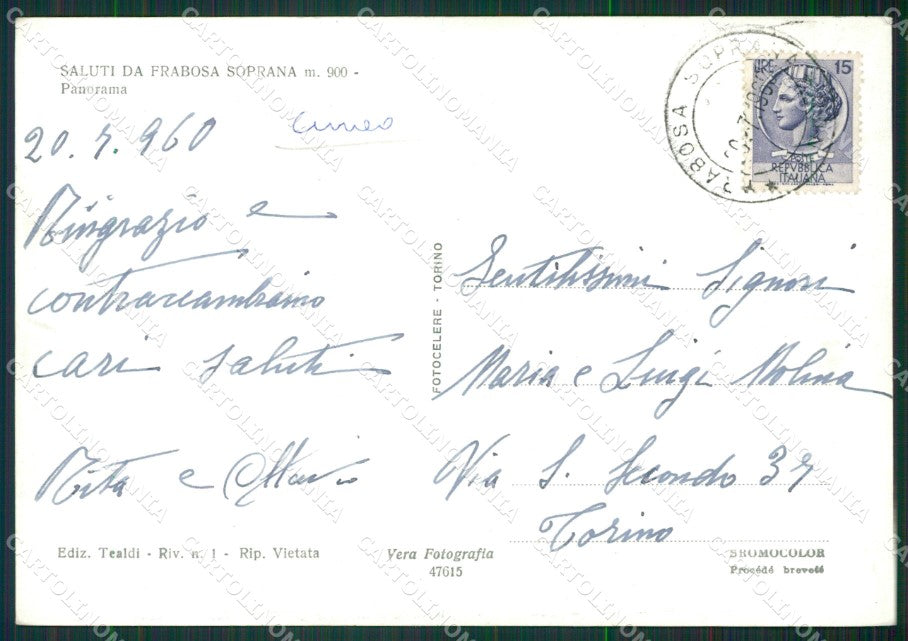 SALUTI DA FRABOSA SOPRANA m. 900 -
Panorama
20.7.960
Cuneo
Ringrazio e
contraccambiamo
cari saluti
Rita e Mario
Ediz. Tealdi - Riv. n. 1 - Rip. Vietata
FOTOCELERE - TORINO
Vera Fotografia
47615
FRABOSA SOPRANA
LIRE 15
POSTE
REPVBBLICA
ITALIANA
Gentilissimi Signori
Maria e Luigi Molina
Via S. Secondo 37
Torino
BROMOCOLOR
Procédé breveté
CARTOLINOMANIA